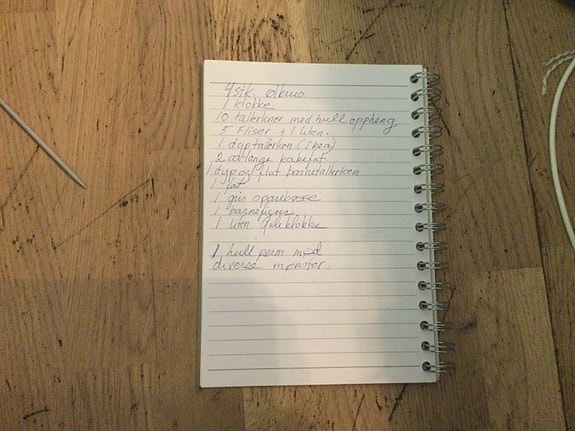 4 stk. ølkrus
1 klokke
10 tallerkner med hull oppheng
5 Fliser + 1 liten.
1 dyp tallerken (Ikea)
2 avlange kakefat
1 dyp og flat barnetallerken
1 fat
1 gris sparebøsse
1 barnefigur
1 liten juleklokke
1 hull perm med
diverse mønster.